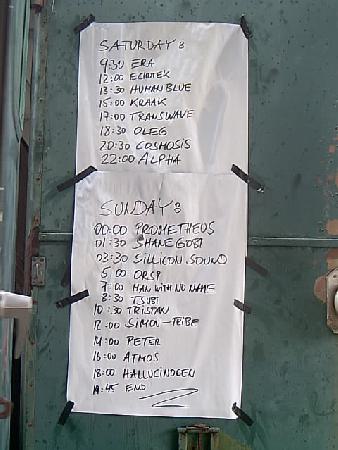 SATURDAY:
9:30 ERA
12:00 ECHOTEK
13:30 HUMAN BLUE
15:00 KRAAK
17:00 TRANSWAVE
18:30 OLEG
20:30 COSMOSIS
22:00 ALPHA
SUNDAY:
00:00 PROMETHEUS
01:30 SHANE GOBI
03:30 SILLICON SOUND
5:00 ORSP
7:00 MAN WITH NO NAME
8:30 TSUBI
10:30 TRISTAN
12:00 SIMIA-TRIBE
14:00 PETER
16:00 ATMOS
18:00 HALLUCINOGEN
19:45 END